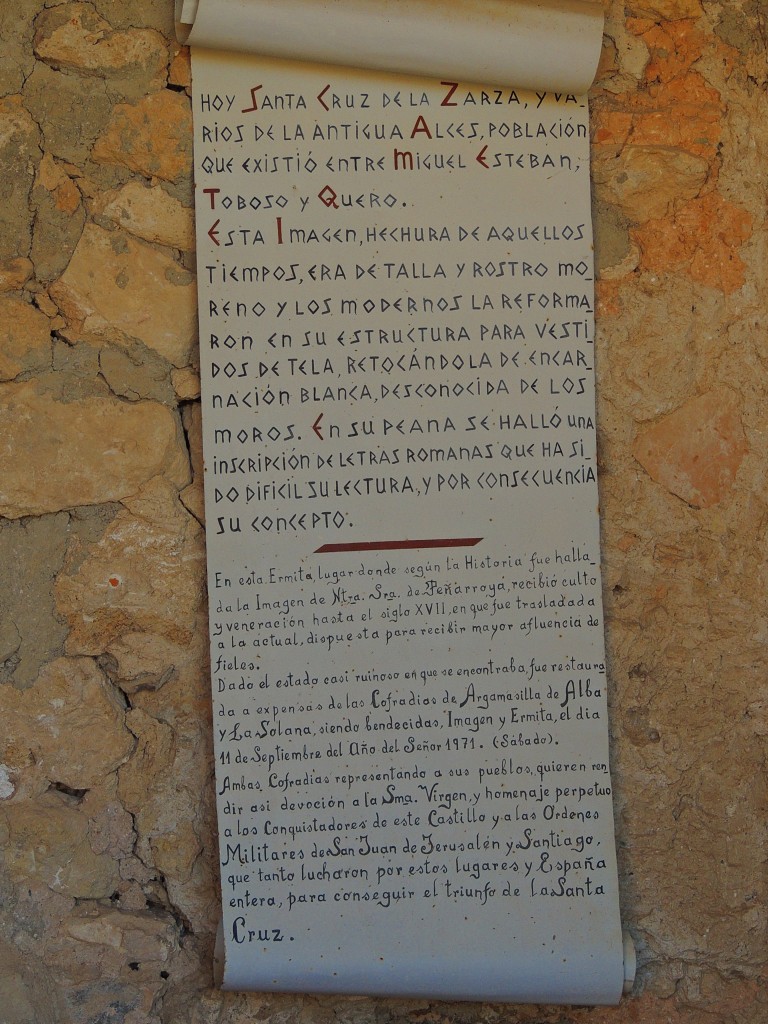 HOY SANTA CRUZ DE LA ZARZA, Y VA_
RIOS DE LA ANTIGUA ALCES, POBLACIÓN
QUE EXISTIÓ ENTRE MIGUEL ESTEBAN,
TOBOSO Y QUERO.
ESTA IMAGEN, HECHURA DE AQUELLOS
TIEMPOS, ERA DE TALLA Y ROSTRO MO_
RENO Y LOS MODERNOS LA REFORMA_
RON EN SU ESTRUCTURA PARA VESTI_
DOS DE TELA, RETOCÁNDOLA DE ENCAR_
NACIÓN BLANCA, DESCONOCIDA DE LOS
MOROS. EN SU PEANA SE HALLÓ UNA
INSCRIPCIÓN DE LETRAS ROMANAS QUE HA SI_
DO DIFICIL SU LECTURA, Y POR CONSECUENCIA
SU CONCEPTO.
En esta Ermita, lugar donde según la Historia fue halla_
da la Imagen de Ntra. Sra. de Peñarroya, recibió culto
y veneración hasta el siglo XVII, en que fue trasladada
a la actual, dispuesta para recibir mayor afluencia de
fieles.
Dado el estado casi ruinoso en que se encontraba, fue restaura_
da a expensas de las Cofradias de Argamasilla de Alba
y La Solana, siendo bendecidas, Imagen y Ermita, el dia
11 de Septiembre del Año del Señor 1971. (Sábado).
Ambas Cofradias representando a sus pueblos, quieren ren_
dir asi devoción a la Sma. Virgen, y homenaje perpetuo
a los Conquistadores de este Castillo y a las Ordenes
Militares de San Juan de Jerusalén y Santiago,
que tanto lucharon por estos lugares y España
entera, para conseguir el triunfo de la Santa
Cruz.